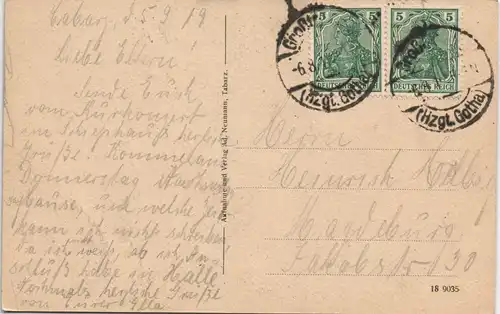 Tabarz, d 5.9/19
Liebe Eltern!
Sende Euch
vom Kurkonzert
im Schießhaus herzl.
Grüße. Komme am
Donnerstag
Hause, und welche Zeit
kann ich nicht schreiben,
da ich nicht weiß, ob ich An
schluß habe in Halle
Nochmals herzliche Grüße
von Eurer Ella
Aufnahme und Verlag Ad. Neumann, Tabarz.
5 5
DEUTSCHES REICH
5 5
DEUTSCHES REICH
(Hzgt. Gotha)
(Hzgt. Gotha)
Herrn
Heinrich
Magdeburg
Jakobstr 30
18 9035